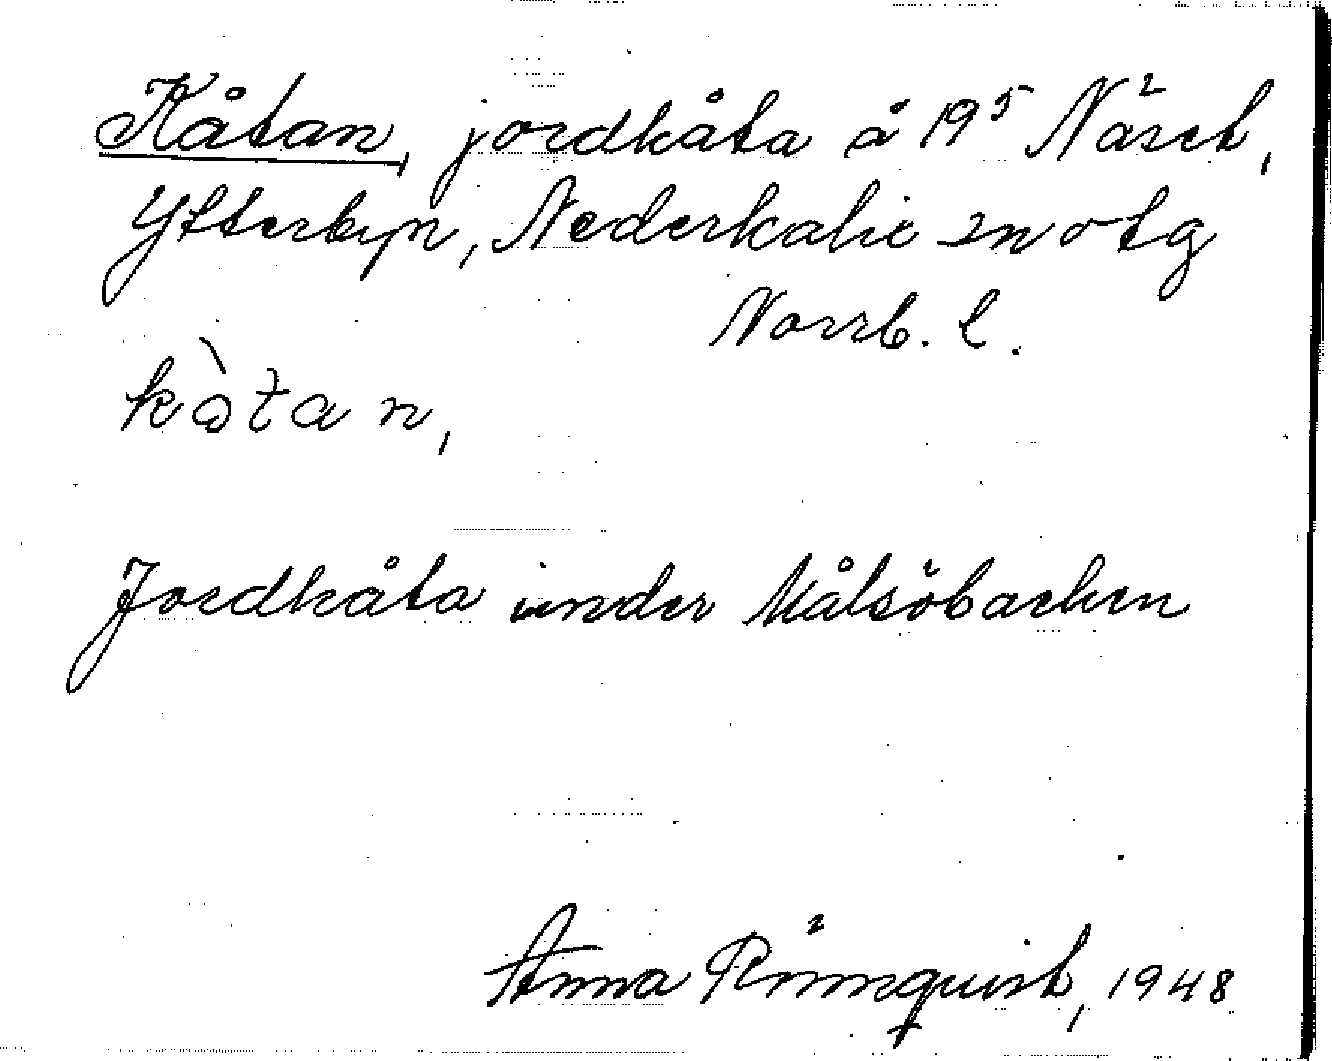 Kåtan, jordkåta å 19⁵ Näset,
Ytterbyn, Nederkalix sn o tg
Norrb. l.
kòtan,
Jordkåta under Målsöbacken
Anna Rönnquist, 1948